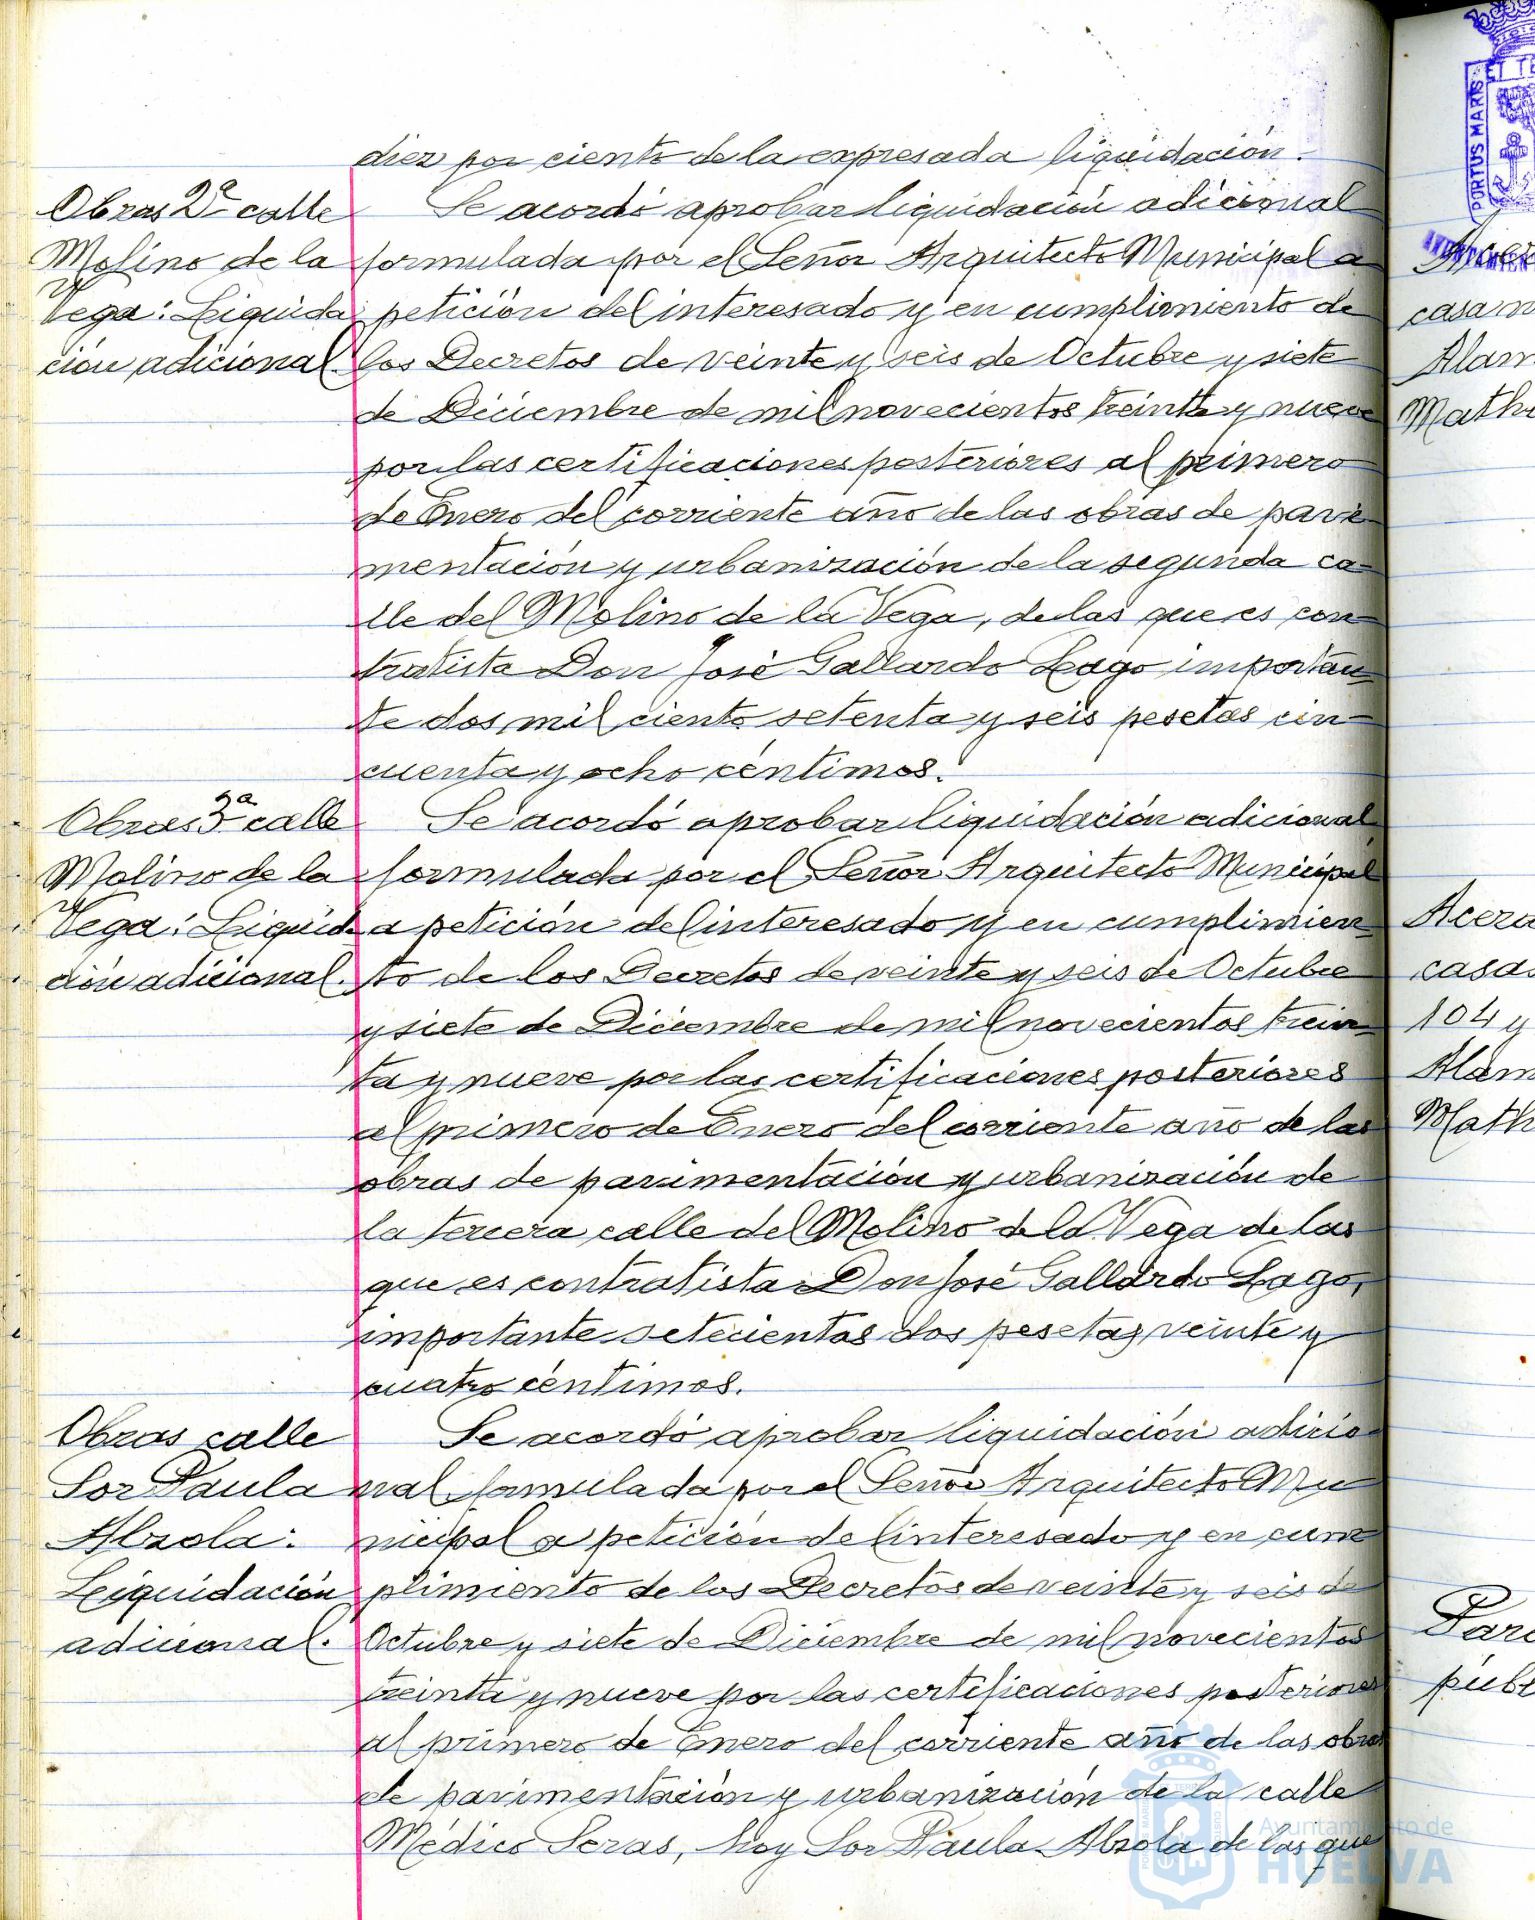 diez por ciento de la expresada liquidación.
Obras 2ª calle
Molino de la
Vega: Liquida
ción adicional.
Se acordó aprobar liquidación adicional
formulada por el Señor Arquitecto Municipal a
petición del interesado y en cumplimiento de
los Decretos de veinte y seis de Octubre y siete
de Diciembre de mil novecientos treinta y nueve
por las certificaciones posteriores al primero
de Enero del corriente año de las obras de pavi-
mentación y urbanización de la segunda ca-
lle del Molino de la Vega, de las que es con-
tratista Don José Gallardo Lago importan-
te dos mil ciento setenta y seis pesetas cin-
cuenta y ocho céntimos.
Obras 3ª calle
Molino de la
Vega: Liquida
ción adicional.
Se acordó aprobar liquidación adicional
formulada por el Señor Arquitecto Municipal
a petición del interesado y en cumplimien-
to de los Decretos de veinte y seis de Octubre
y siete de Diciembre de mil novecientos trein-
ta y nueve por las certificaciones posteriores
al primero de Enero del corriente año de las
obras de pavimentación y urbanización de
la tercera calle del Molino de la Vega de las
que es contratista Don José Gallardo Lago,
importante setecientas dos pesetas veinte y
cuatro céntimos.
Obras calle
Sor Paula
Alzola:
Liquidación
adicional.
Se acordó aprobar liquidación adicio
nal formulada por el Señor Arquitecto Mu
nicipal a petición del interesado y en cum
plimiento de los Decretos de veinte y seis de
Octubre y siete de Diciembre de mil novecientos
treinta y nueve por las certificaciones posteriores
al primero de Enero del corriente año de las obras
de pavimentación y urbanización de la calle
Médico Seras, hoy Sor Paula Alzola de las que
Ayuntamiento de
HUELVA
PORTUS MARIS
ET TE
casa n
Alam
Math
Acera
casas
104 y
Alam
Math
Para
públ